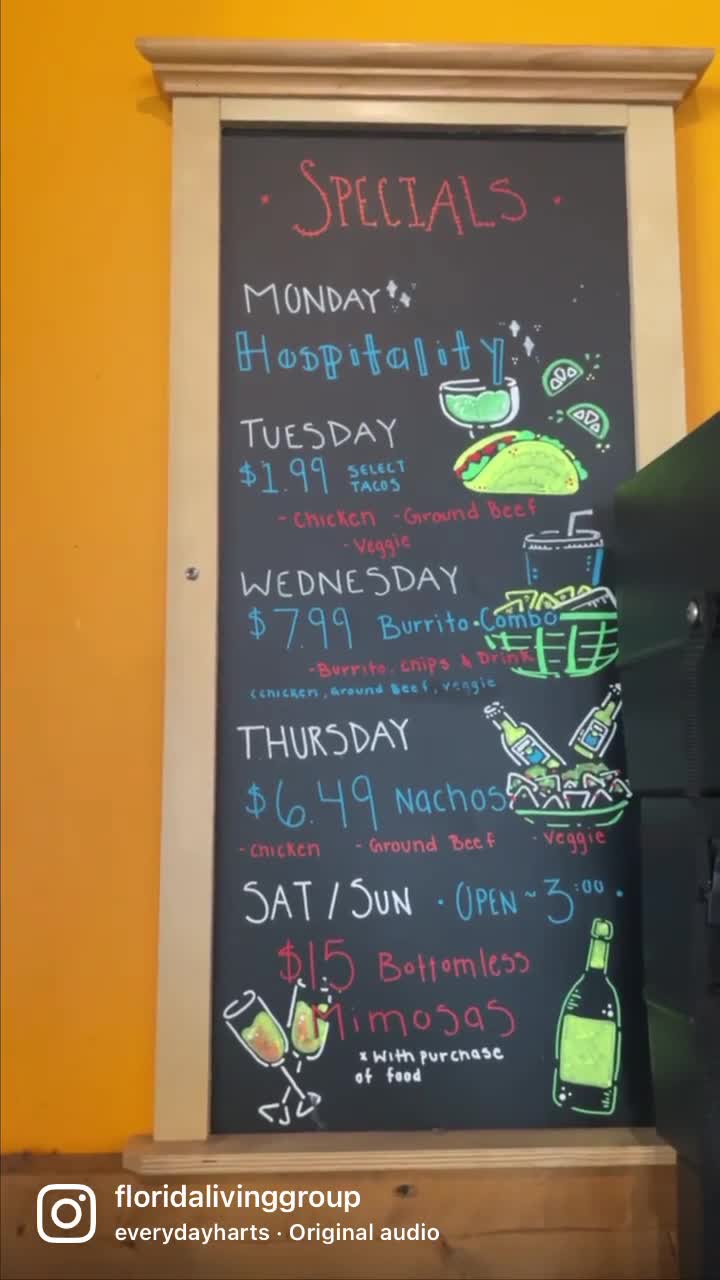 · SPECIALS ·
MONDAY
Hospitality
TUESDAY
$1.99 SELECT TACOS
- Chicken - Ground Beef
- Veggie
WEDNESDAY
$7.99 Burrito · Combo
- Burrito, Chips & Drink
(Chicken, Ground Beef, veggie
THURSDAY
$6.49 Nachos
- Chicken - Ground Beef - Veggie
SAT / SUN · OPEN ~ 3:00 ·
$15 Bottomless
Mimosas
* With purchase
of food
floridalivinggroup
everydayharts · Original audio